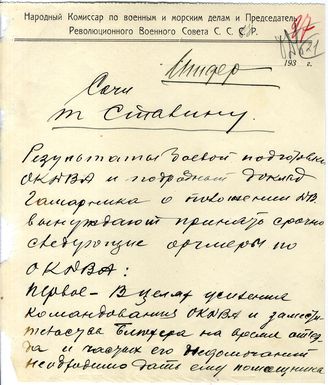 Народный Комиссар по военным и морским делам и Председатель
Революционного Военного Совета С. С. С. Р.
193 г.
Шифер
Сочи
т Сталину.
Результаты боевой подготовки
ОКДВА и подробный доклад
Гамарника о положении ДВ
вынуждают принять срочно
следующие оргмеры по
ОКДВА:
Первое – В целях усиления
командования ОКДВА и замести-
тельства Блюхера на время отъез-
да и частых его недомоганий
необходимо дать ему помощника